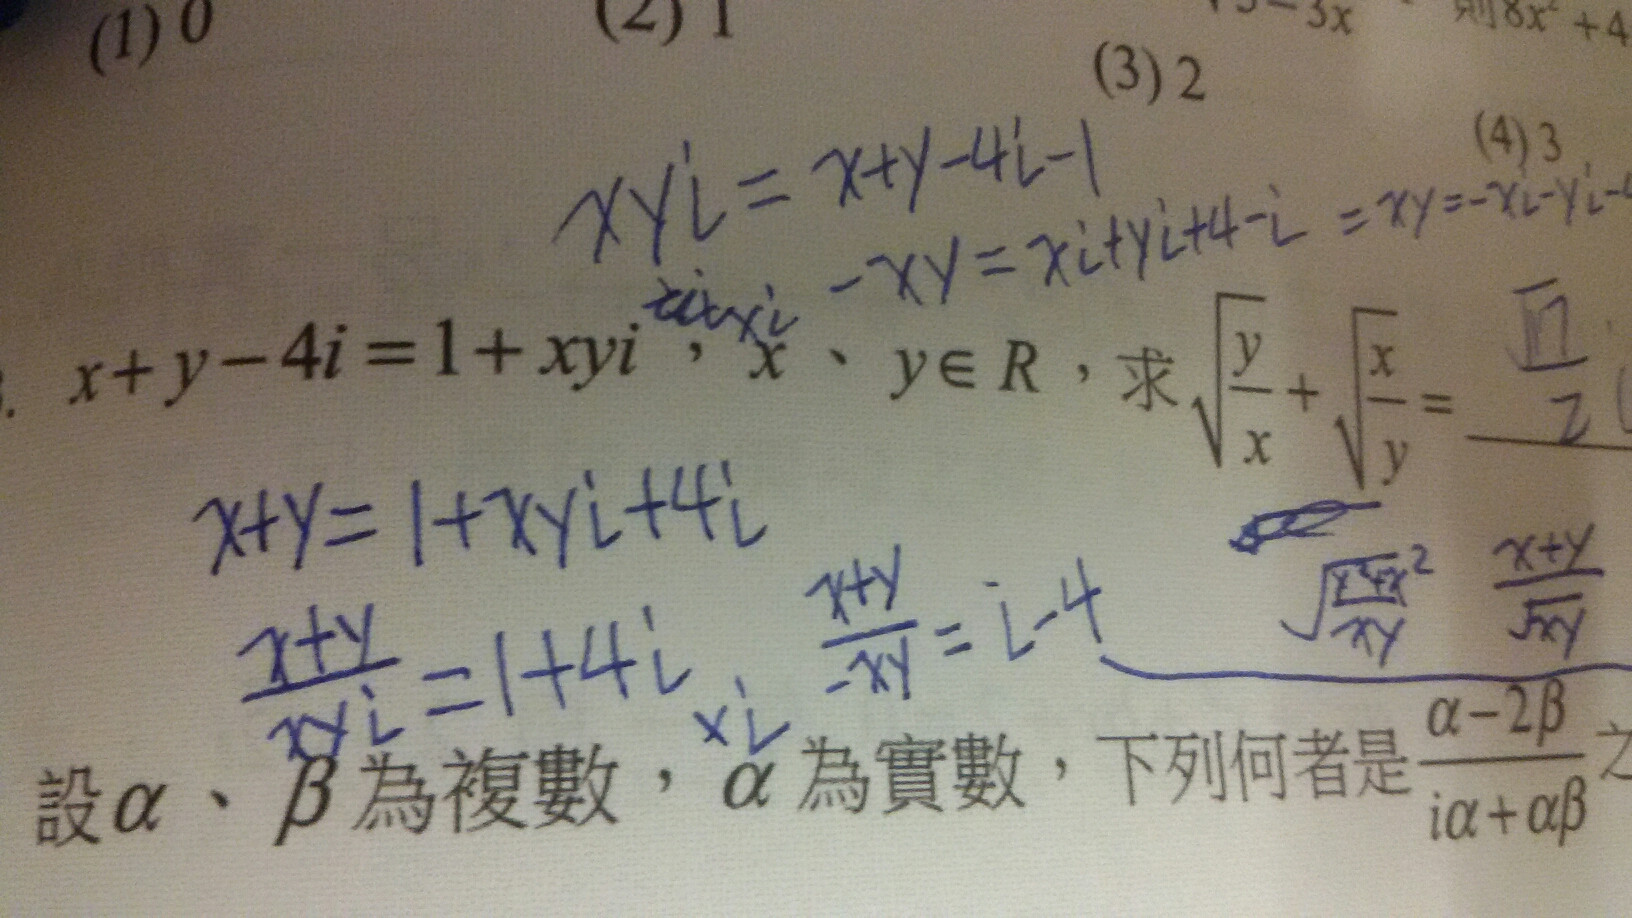 (1) 0 (2) 1 (3) 2 (4) 3
√5-3x 則8x² + 4
xyi = x+y-4i-1
-xy = xi+yi+4-i = xy=-xi-yi-
xi
x + y - 4i = 1 + xyi , x 、 y ∈ R ,求 √(y/x) + √(x/y) =
x+y = 1+xyi+4i
(x+y)/(xyi) = 1+4i xi (x+y)/(-xy) = i-4
(x+y)/√xy
設α 、 β為複數, α為實數,下列何者是 (α-2β)/(iα+αβ) 之